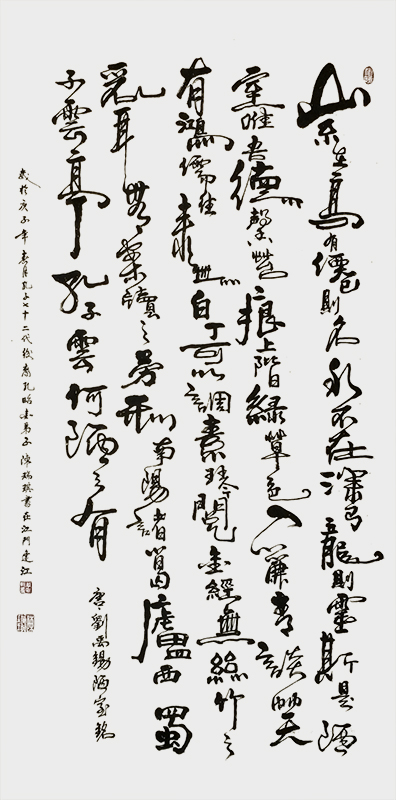 山不在高有僊則名水不在深有龍則靈斯是陋
室唯吾德馨苔痕上階綠草色入簾青談咲天
有鴻儒往來無白丁可以調素琴閱金經無絲竹之
亂耳無案牘之勞形南陽諸葛廬西蜀
子雲亭孔子雲何陋之有
唐劉禹錫陋室銘
歲於庚子年春月孔子七十二代後裔孔昭來弟子陳瑞琪書在江門蓬江